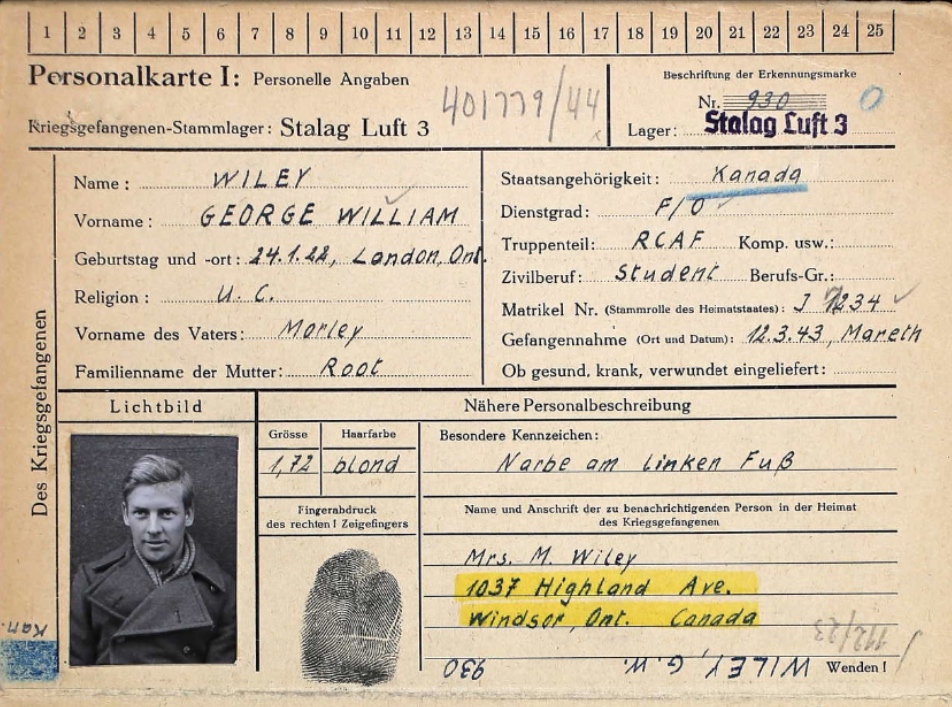 1 2 3 4 5 6 7 8 9 10 11 12 13 14 15 16 17 18 19 20 21 22 23 24 25
Personalkarte I: Personelle Angaben
Kriegsgefangenen-Stammlager: Stalag Luft 3
401779/44
Beschriftung der Erkennungsmarke
Nr. 930
Lager: Stalag Luft 3
Des Kriegsgefangenen
Name: WILEY
Vorname: GEORGE WILLIAM
Geburtstag und -ort: 24.1.22, London, Ont.
Religion: U. C.
Vorname des Vaters: Morley
Familienname der Mutter: Root
Staatsangehörigkeit: Kanada
Dienstgrad: F/O
Truppenteil: RCAF Komp. usw.:
Zivilberuf: Student Berufs-Gr.:
Matrikel Nr. (Stammrolle des Heimatstaates): J 7234
Gefangennahme (Ort und Datum): 12.3.43, Mareth
Ob gesund, krank, verwundet eingeliefert:
Lichtbild
Nähere Personalbeschreibung
Grösse Haarfarbe
1,72 blond
Fingerabdruck
des rechten ! Zeigefingers
Besondere Kennzeichen:
Narbe am linken Fuß
Name und Anschrift der zu benachrichtigenden Person in der Heimat
des Kriegsgefangenen
Mrs. M. Wiley
1037 Highland Ave.
Windsor, Ont. Canada
Wenden !
WILEY, G.W. 930
Kan.